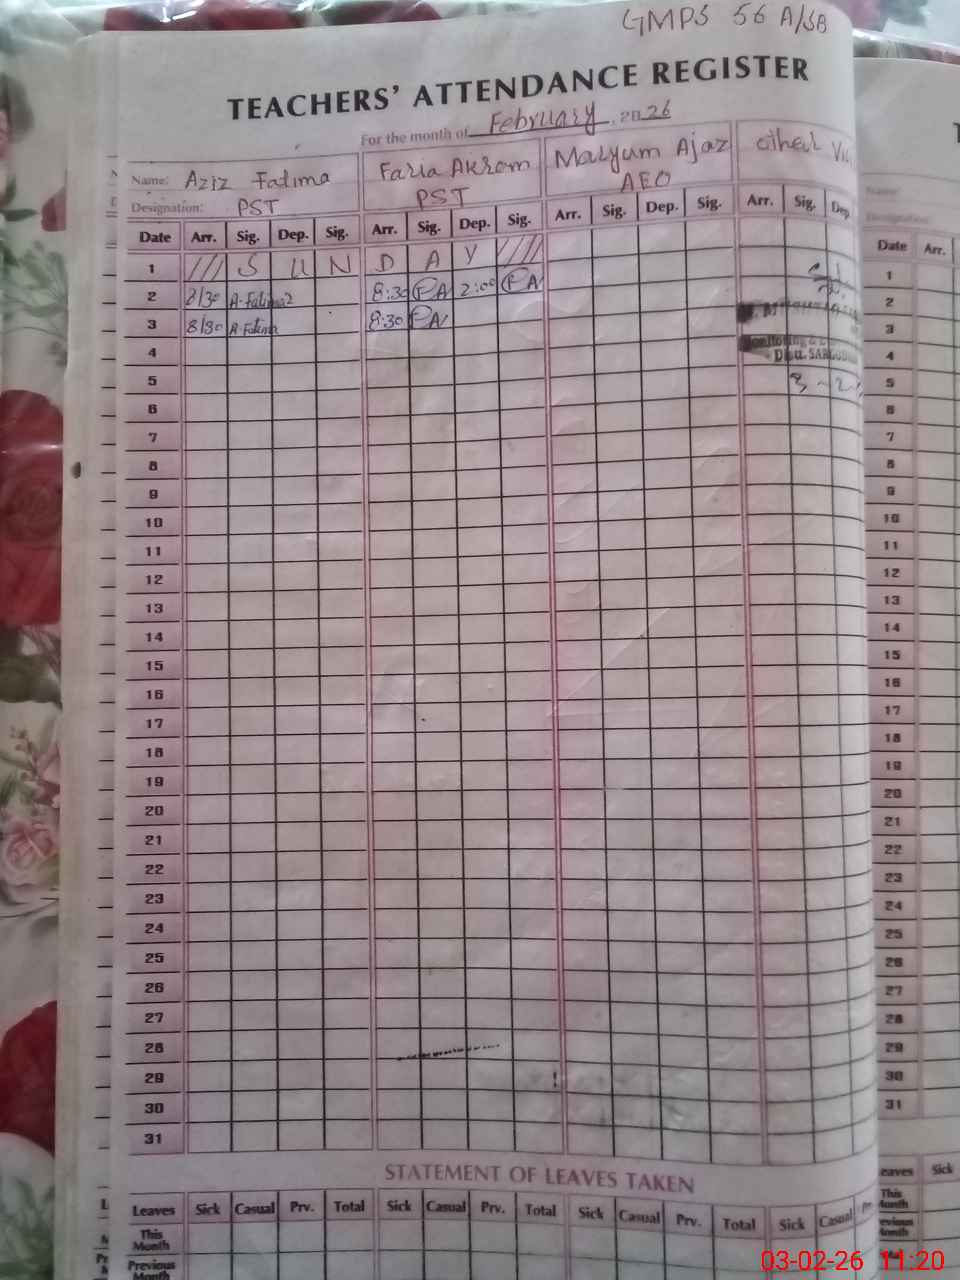 GMPS 56 A/SB
TEACHERS' ATTENDANCE REGISTER
For the month of February, 2026
Name: Aziz Fatima Faria Akram Maryum Ajaz other
Designation: PST PST AEO
Date Arr. Sig. Dep. Sig. Arr. Sig. Dep. Sig. Arr. Sig. Dep. Sig. Arr. Sig. Dep
1 S U N D A Y
2 8/30 A-Fatima 8:30 FA 2:00 FA
3 8/30 A-Fatima 8:30 FA
4
5
6
7
8
9
10
11
12
13
14
15
16
17
18
19
20
21
22
23
24
25
26
27
28
29
30
31
STATEMENT OF LEAVES TAKEN
Leaves Sick Casual Prv. Total Sick Casual Prv. Total Sick Casual Prv. Total Sick Casual
This Month
Previous Month
Date Arr.
1
2
3
4
5
6
7
8
9
10
11
12
13
14
15
16
17
18
19
20
21
22
23
24
25
26
27
28
29
30
31
eaves Sick
This
03-02-26 11:20